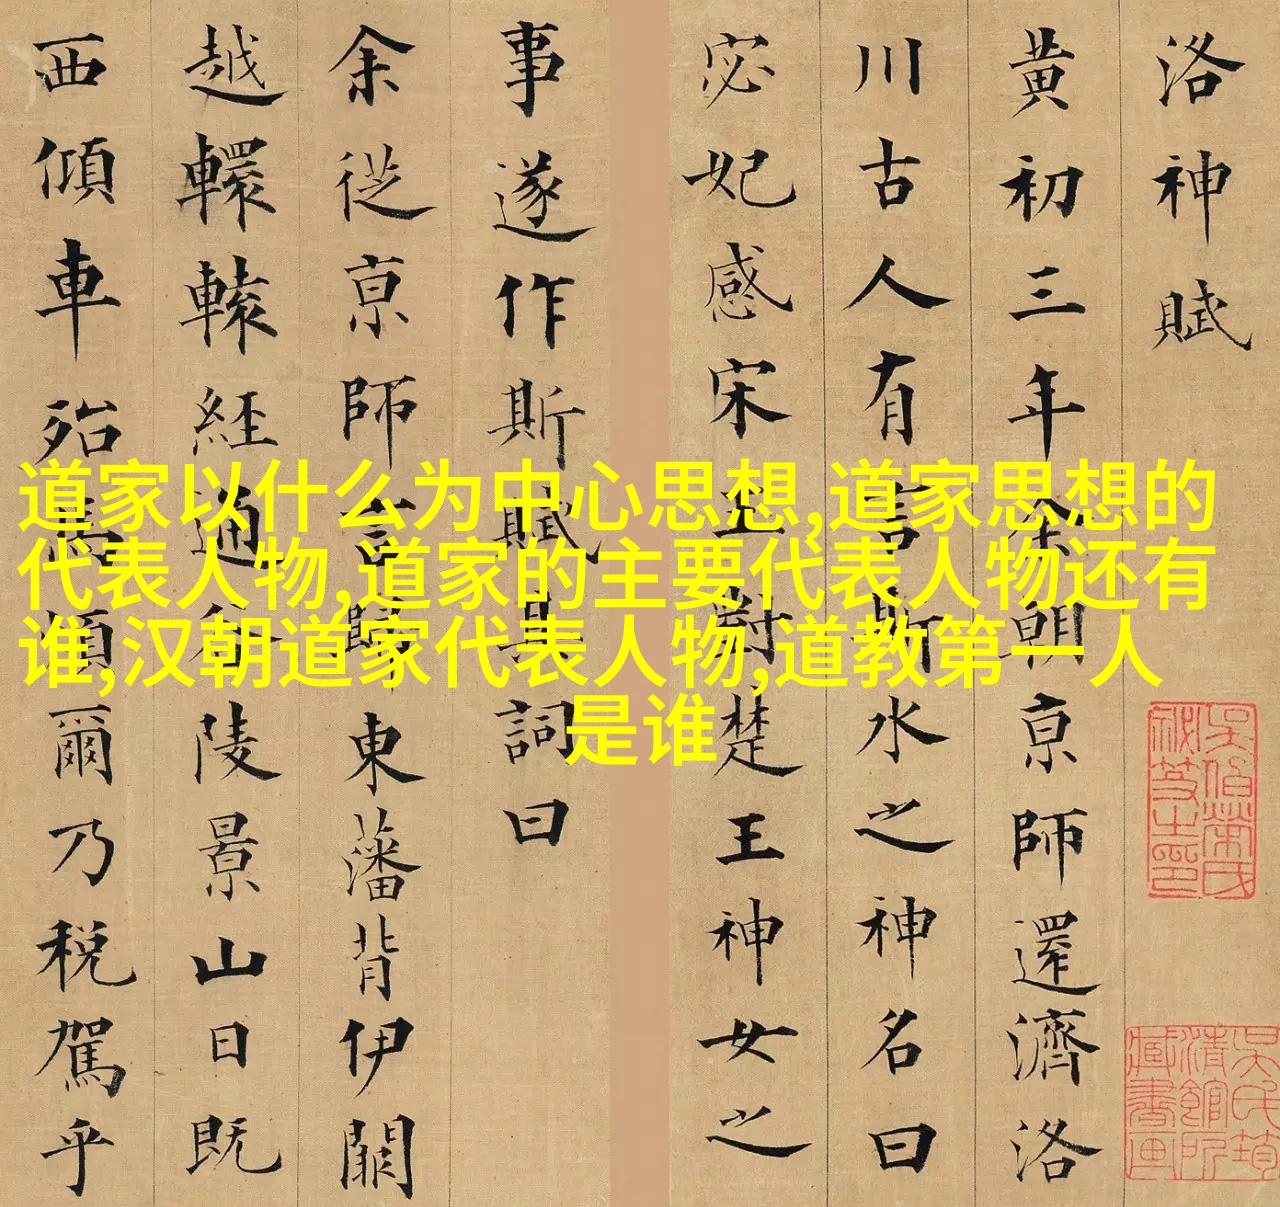 道家以什么为中心思想,道家思想的
代表人物,道家的主要代表人物还有
谁,汉朝道家代表人物,道教第一人
是谁
洛神賦
黃初三年余朝京師還濟洛
川古人有言斯水之神名曰
宓妃感宋玉對楚王神女之
事遂作斯賦其詞曰
余從京師言歸東藩背伊闕
越轘轅經通谷陵景山日既
西傾車殆馬煩爾乃稅駕乎
吳氏筠
清館所
藏書画